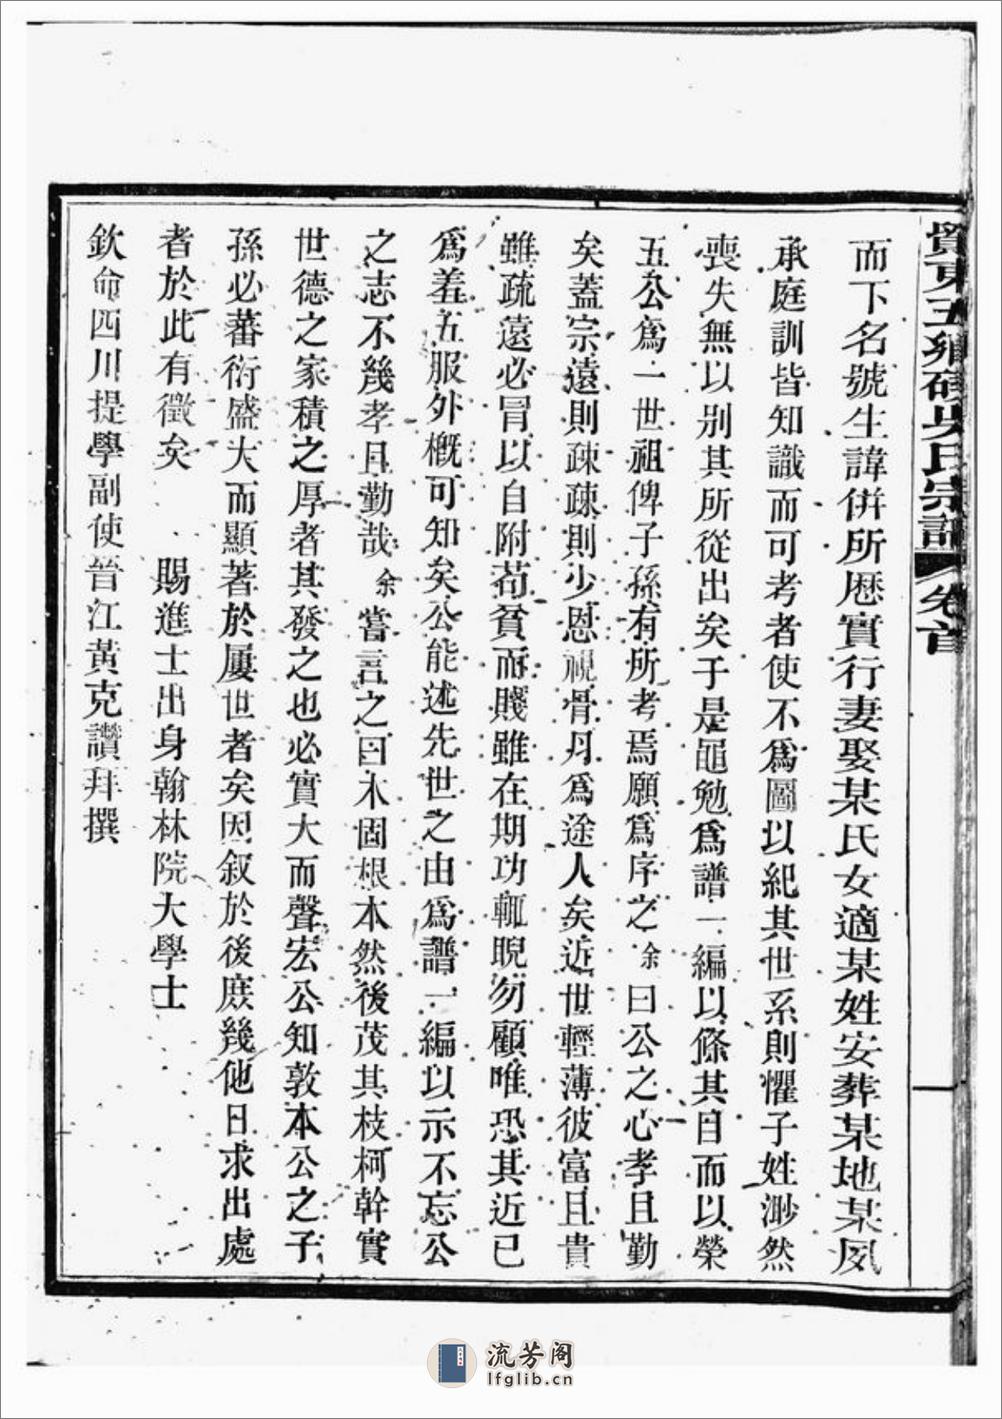 吳氏宗譜 卷首
一
而下名號生諱併所歷實行妻娶某氏女適某姓安葬某地某夙
承庭訓皆知識而可考者使不爲圖以紀其世系則懼子姓渺然
喪失無以别其所從出矣于是黽勉爲譜一編以條其目而以榮
五公爲一世祖俾子孫有所考焉願爲序之余曰公之心孝且勤
矣蓋宗遠則疎疎則少恩視骨月爲途人矣近世輕薄彼富且貴
雖疏遠必冒以自附苟貧而賤雖在期功輒睨勿顧唯恐其近已
爲羞五服外概可知矣公能述先世之由爲譜一編以示不忘公
之志不幾孝且勤哉余嘗言之曰木固根本然後茂其枝柯幹實
世德之家積之厚者其發之也必實大而聲宏公知敦本公之子
孫必蕃衍盛大而顯著於屢世者矣因叙於後庶幾他日求出處
者於此有徵矣 賜進士出身翰林院大學士
欽命四川提學副使晉江黃克讚拜撰
流芳阁
lfglib.cn